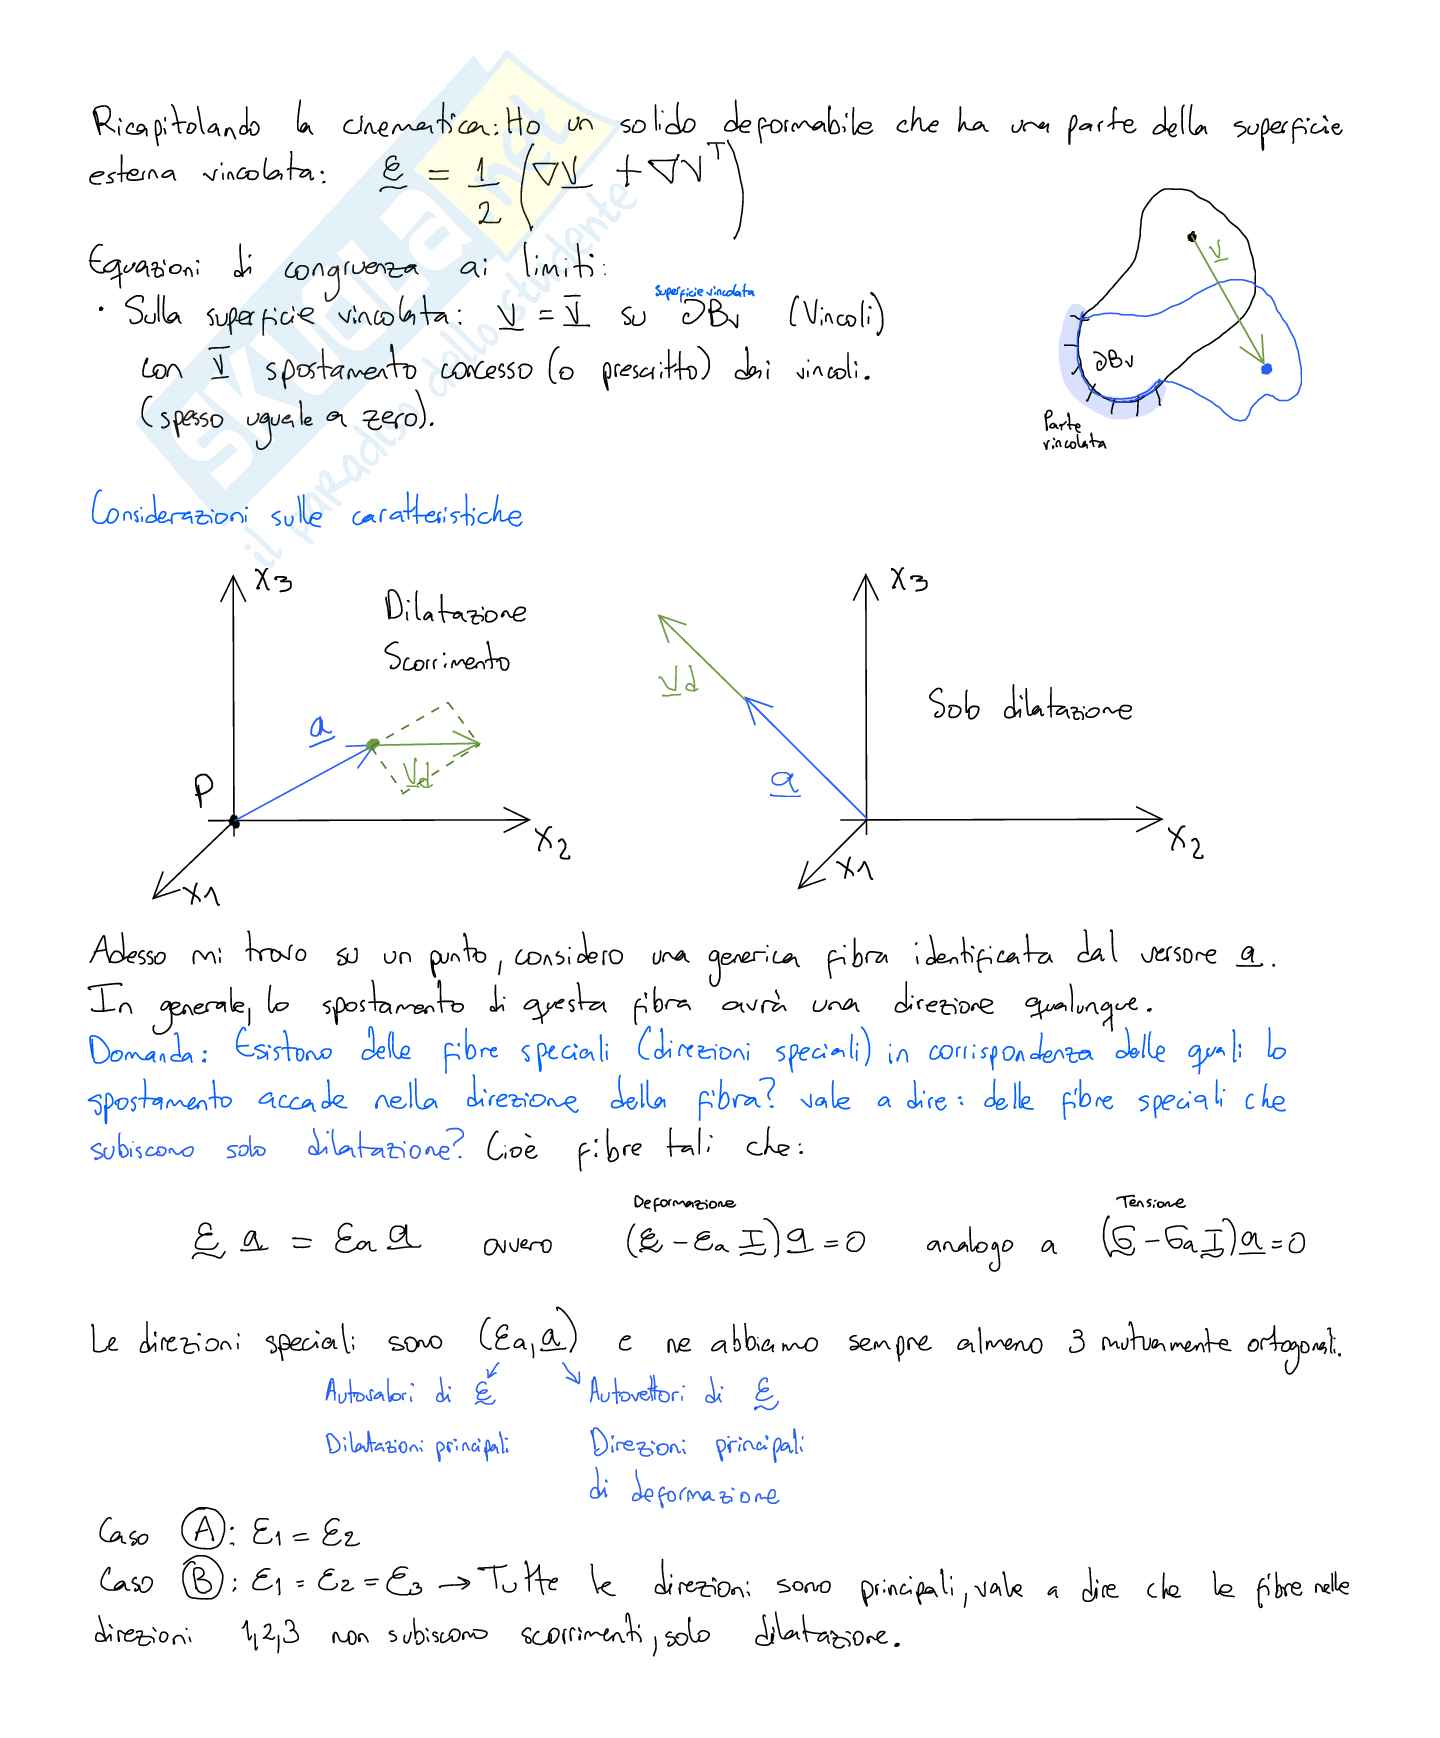 Ricapitolando la cinematica: Ho un solido deformabile che ha una parte della superficie
esterna vincolata: ε = 1/2 (∇V + ∇V^T)
Equazioni di congruenza ai limiti:
• Sulla superficie vincolata: V = V̅ su ∂Bv (Vincoli)
Superficie vincolata
con V̅ spostamento concesso (o prescritto) dai vincoli.
(spesso uguale a zero).
V
∂Bv
Parte
vincolata
Considerazioni sulle caratteristiche
X3
Dilatazione
Scorrimento
a
Vd
P
X2
X1
X3
Vd
Solo dilatazione
a
X2
X1
Adesso mi trovo su un punto, considero una generica fibra identificata dal versore a.
In generale, lo spostamento di questa fibra avrà una direzione qualunque.
Domanda: Esistono delle fibre speciali (direzioni speciali) in corrispondenza delle quali lo
spostamento accade nella direzione della fibra? vale a dire: delle fibre speciali che
subiscono solo dilatazione? Cioè fibre tali che:
Deformazione
Tensione
ε a = εa a ovvero (ε - εa I) a = 0 analogo a (σ - σa I) a = 0
Le direzioni speciali sono (εa, a) e ne abbiamo sempre almeno 3 mutuamente ortogonali.
Autovalori di ε
Dilatazioni principali
Autovettori di ε
Direzioni principali
di deformazione
Caso A: ε1 = ε2
Caso B: ε1 = ε2 = ε3 → Tutte le direzioni sono principali, vale a dire che le fibre nelle
direzioni 1,2,3 non subiscono scorrimenti, solo dilatazione.
SKUOLA.net
il paradiso dello studente